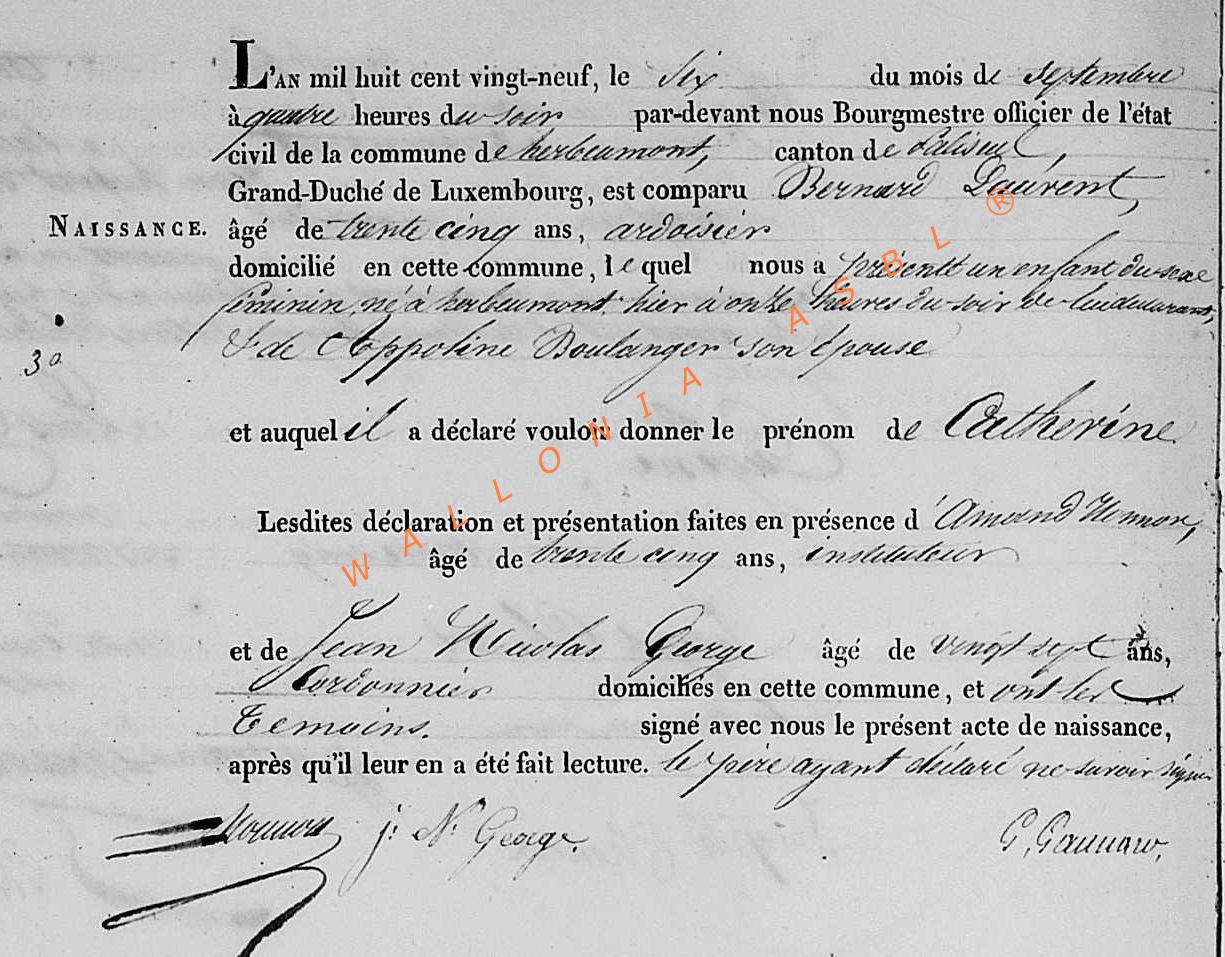 L'AN mil huit cent vingt-neuf, le six du mois de septembre
à quatre heures du soir par-devant nous Bourgmestre officier de l'état
civil de la commune de herbeumont, canton de Paliseul,
Grand-Duché de Luxembourg, est comparu Bernard Laurent,
NAISSANCE. âgé de trente cinq ans, ardoisier
domicilié en cette commune, lequel nous a présenté un enfant du sexe
féminin, né à herbeumont, hier à onze heures du soir de lui déclarant,
& de Appoline Boulanger son épouse
30
et auquel il a déclaré vouloir donner le prénom de Catherine
Lesdites déclaration et présentation faites en présence d'Amand
âgé de trente cinq ans, instituteur
et de Jean Nicolas George âgé de vingt sept ans,
Cordonnier domiciliés en cette commune, et ont les
temoins. signé avec nous le présent acte de naissance,
après qu'il leur en a été fait lecture. le père ayant déclaré ne savoir signer
j. N. George.
WALLONIA ASBL ®